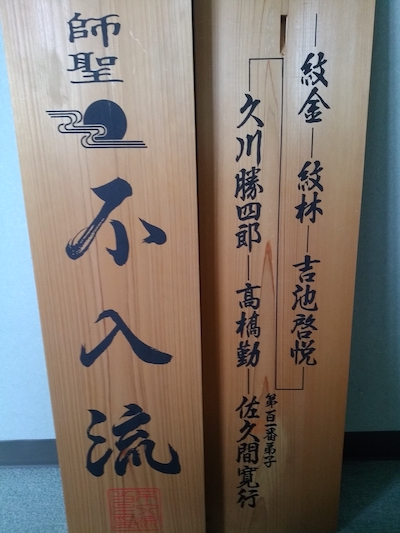 師聖
不入流
紋金―紋林―吉池啓悦
久川勝四郎―高橋勤―佐久間寛行
第百一番弟子